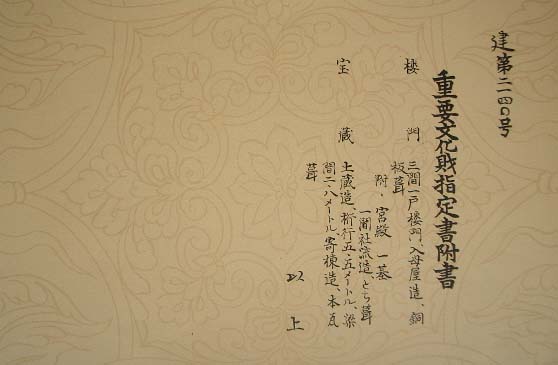 建第二一四〇号
重要文化財指定書附書
楼門 三間一戸楼門、入母屋造、銅
板葺
附・宮殿 一基
一間社流造、とち葺
宝蔵 土蔵造、桁行五・五メートル、梁
間二・八メートル、寄棟造、本瓦
葺
以上